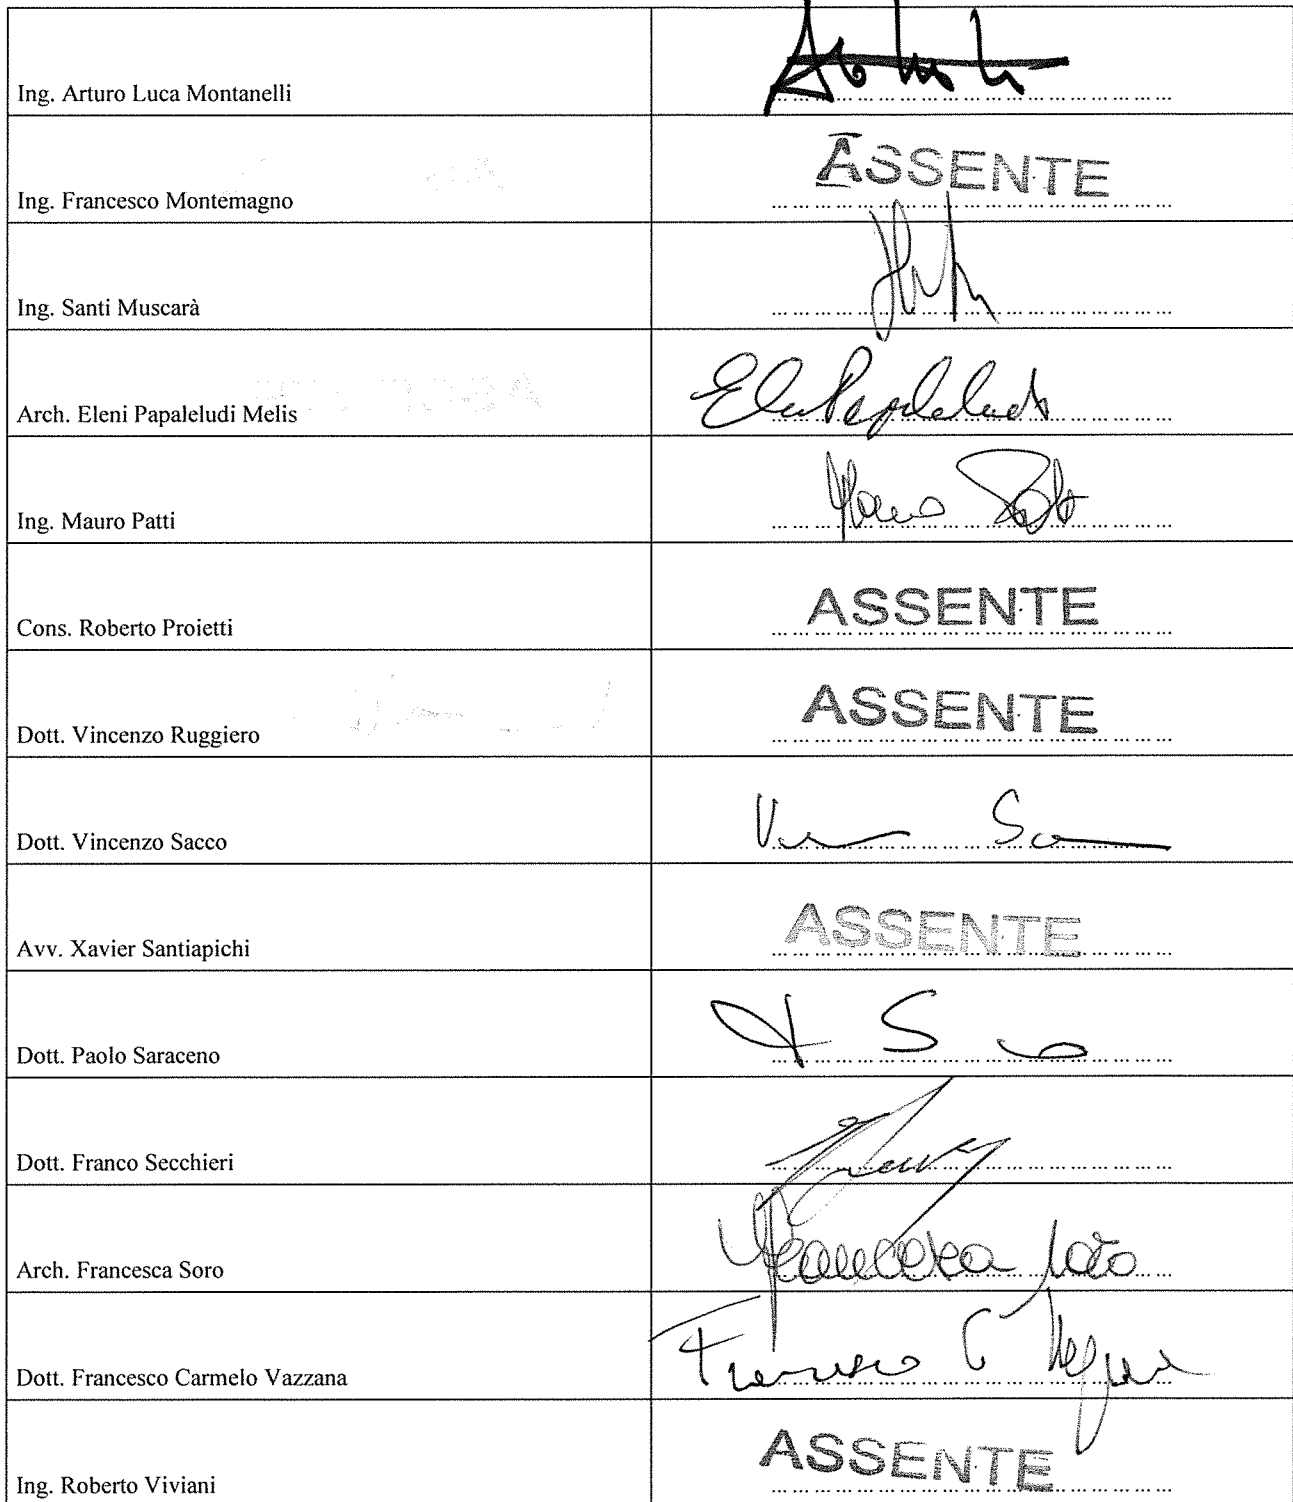 Ing. Arturo Luca Montanelli
Ing. Francesco Montemagno ASSENTE
Ing. Santi Muscarà
Arch. Eleni Papaleludi Melis
Ing. Mauro Patti
Cons. Roberto Proietti ASSENTE
Dott. Vincenzo Ruggiero ASSENTE
Dott. Vincenzo Sacco
Avv. Xavier Santiapichi ASSENTE
Dott. Paolo Saraceno
Dott. Franco Secchieri
Arch. Francesca Soro Francesca Soro
Dott. Francesco Carmelo Vazzana
Ing. Roberto Viviani ASSENTE